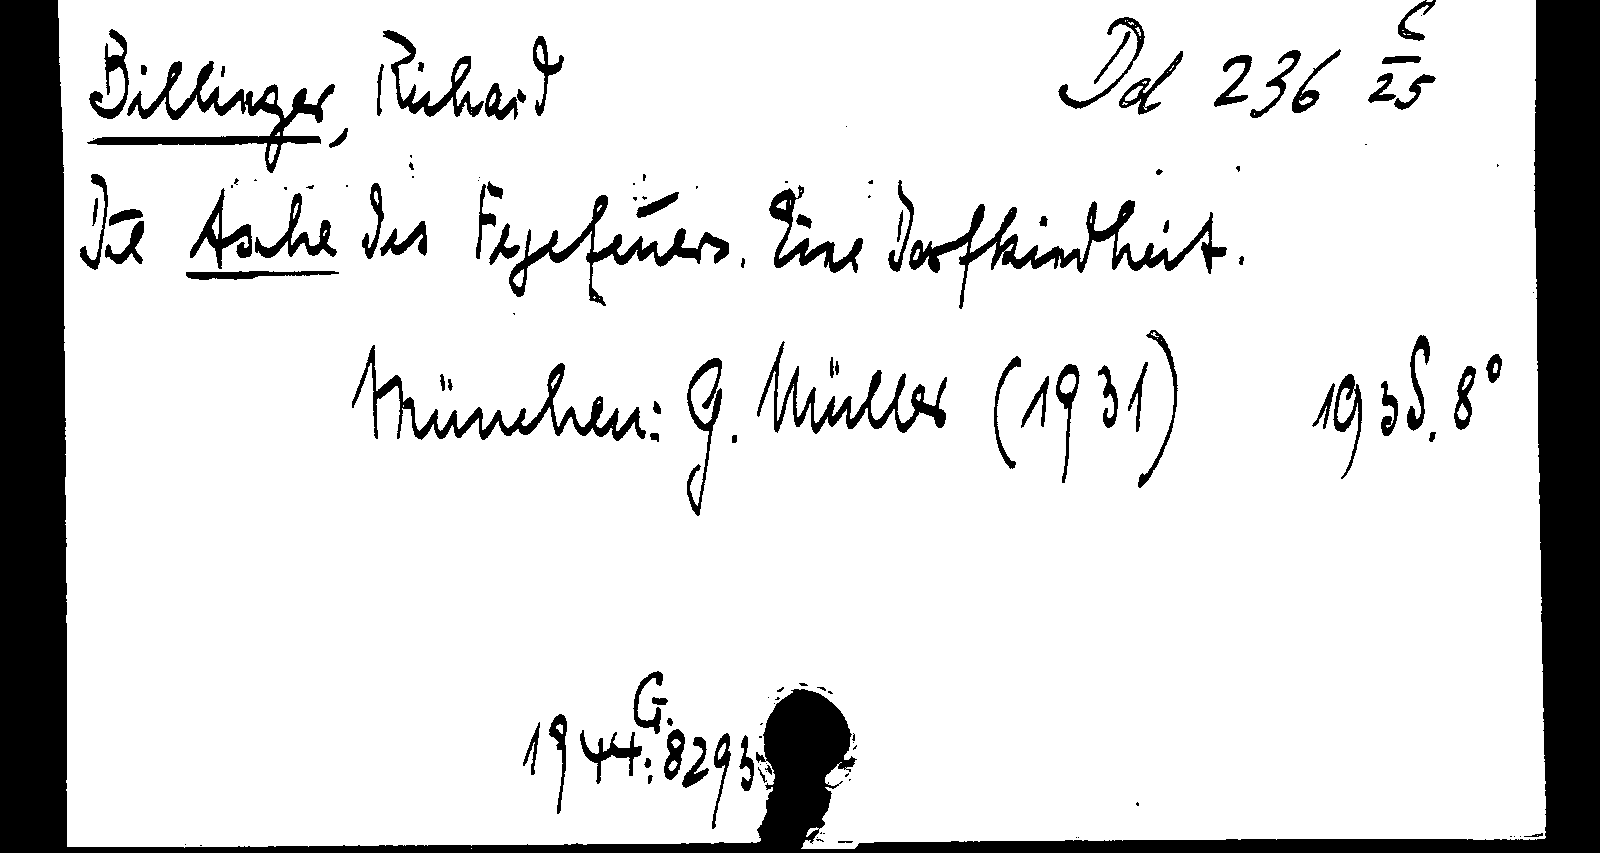 Billinger, Richard Dd 236 C/25
Die Asche des Fegefeuers. Eine Dorfkindheit.
München: G. Müller (1931) 193 S. 8°
G.
1944: 8293